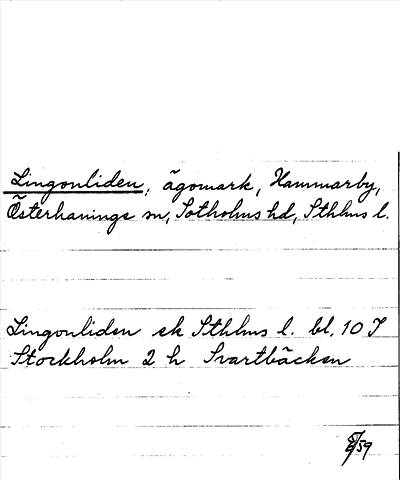 Lingonliden, ägomark, Hammarby,
Österhaninge sn, Sotholms hd, Sthlms l.
Lingonliden ek Sthlms l. bl. 10 I
Stockholm 2 h Svartbäcken